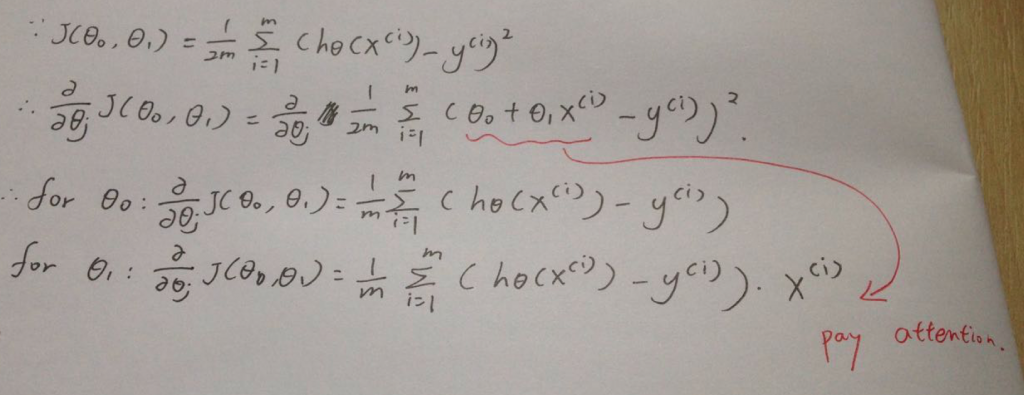 ∵ J(θ₀, θ₁) = 1/2m Σᵢ₌₁ᵐ (hθ(x⁽ⁱ⁾) − y⁽ⁱ⁾)²
∴ ∂/∂θⱼ J(θ₀, θ₁) = ∂/∂θⱼ 1/2m Σᵢ₌₁ᵐ (θ₀ + θ₁x⁽ⁱ⁾ − y⁽ⁱ⁾))².
∴ for θ₀: ∂/∂θⱼ J(θ₀, θ₁) = 1/m Σᵢ₌₁ᵐ (hθ(x⁽ⁱ⁾) − y⁽ⁱ⁾)
for θ₁: ∂/∂θⱼ J(θ₀, θ₁) = 1/m Σᵢ₌₁ᵐ (hθ(x⁽ⁱ⁾) − y⁽ⁱ⁾). x⁽ⁱ⁾
pay attention.